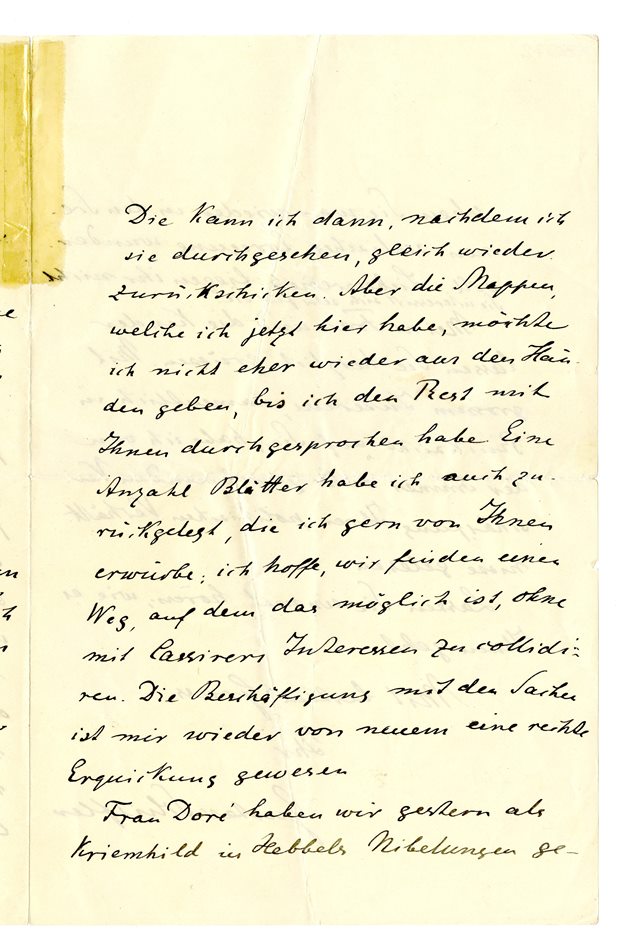 Die kann ich dann, nachdem ich
sie durchgesehen, gleich wieder
zurückschicken. Aber die Mappen,
welche ich jetzt hier habe, möchte
ich nicht eher wieder aus den Hän-
den geben, bis ich den Rest mit
Ihnen durchgesprochen habe. Eine
Anzahl Blätter habe ich auch zu-
rückgelegt, die ich gern von Ihnen
erwürbe; ich hoffe, wir finden einen
Weg, auf dem das möglich ist, ohne
mit Cassirers Interessen zu collidi-
ren. Die Beschäftigung mit den Sachen
ist mir wieder von neuem eine rechte
Erquickung gewesen
Frau Doré haben wir gestern als
Kriemhild in Hebbels Nibelungen ge-